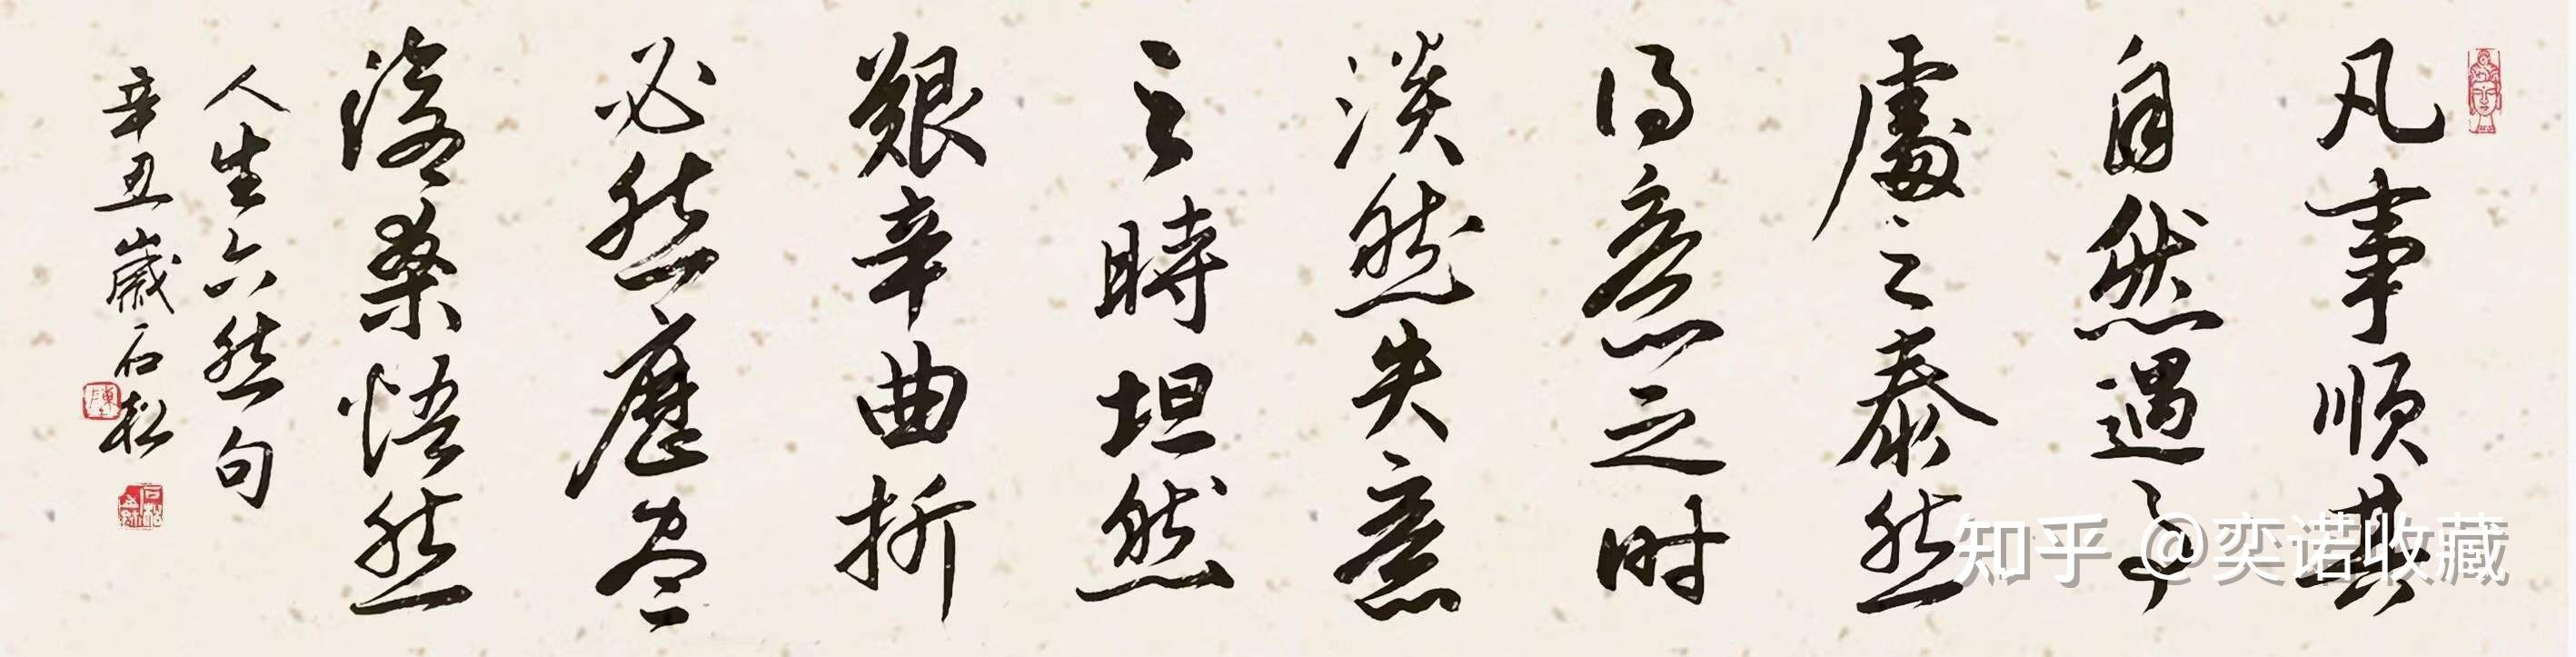 凡事順其
自然遇事
處之泰然
得意之时
淡然失意
之時坦然
艱辛曲折
必然歷尽
滄桑悟然
人生六然句
辛丑歲石松
知乎 @奕诺收藏